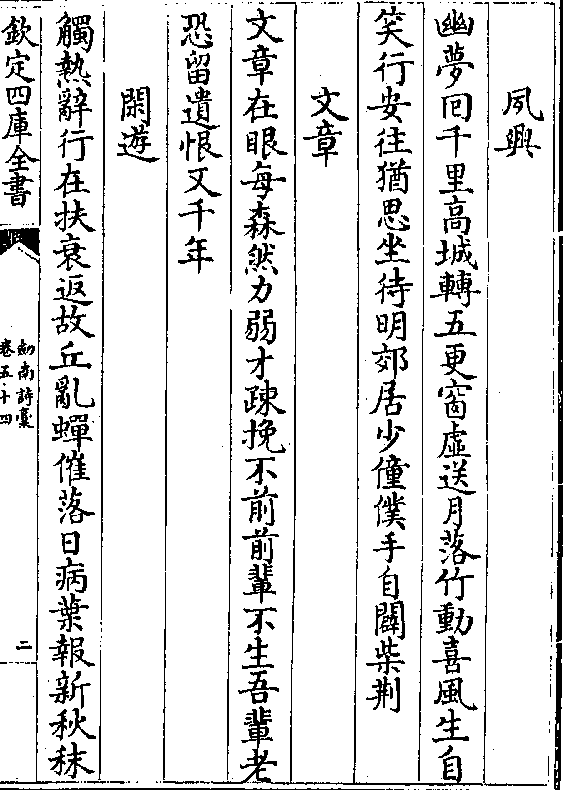 夙興
幽夢回千里高城轉五更窗虛送月落竹動喜風生自
笑行安往猶思坐待明郊居少僮僕手自闢柴荆
文章
文章在眼每森然力弱才疎挽不前前輩不生吾輩老
恐留遺恨又千年
閑遊
觸熱辭行在扶衰返故丘亂蟬催落日病葉報新秋秣
欽定四庫全書
劍南詩稾
卷五十四
二